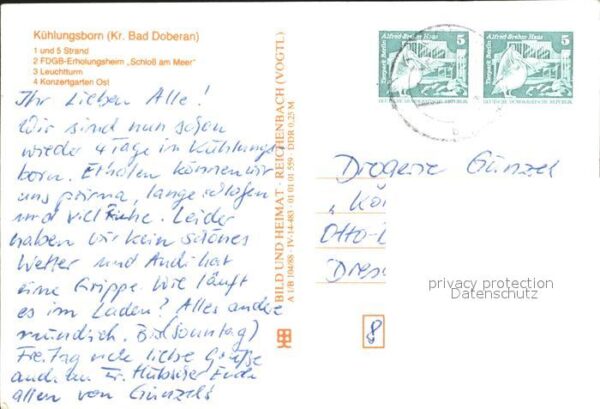 Kühlungsborn (Kr. Bad Doberan)
1 und 5 Strand
2 FDGB-Erholungsheim „Schloß am Meer"
3 Leuchtturm
4 Konzertgarten Ost
Ihr Lieben Alle!
Wir sind nun schon
wieder 4 Tage in Kühlungs
born. Erholen können wir
uns prima, lange schlafen
und viel Ruhe. Leider
haben wir kein schönes
Wetter und Andi hat
eine Grippe. Wie läuft
es im Laden? Alles andere
mündlich. Bis (Sonntag)
Freitag viele liebe Grüße
auch an Fr.
allen von Günzels
BILD UND HEIMAT · REICHENBACH (VOGTL)
A 1/B 104/88 · IV-14-483 · 01 01 01 559 · DDR 0,25 M
Alfred-Brehm-Haus
5
Tierpark Berlin
DEUTSCHE DEMOKRATISCHE REPUBLIK
Alfred-Brehm-Haus
5
Tierpark Berlin
DEUTSCHE DEMOKRATISCHE REPUBLIK
Drogerie Günzel
Otto-
Dres
8
privacy protection
Datenschutz